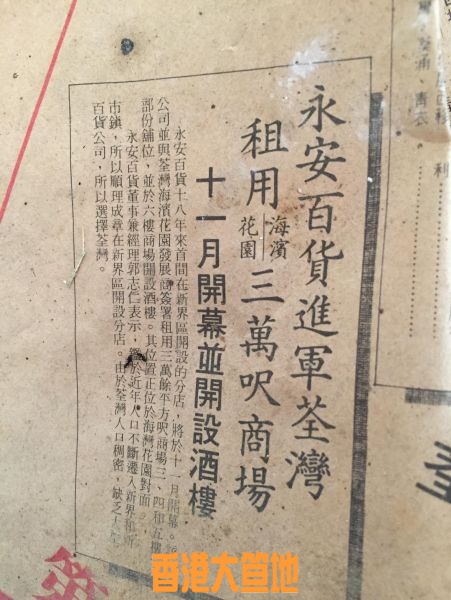 永安百貨進軍荃灣
租用海濱花園三萬呎商場
十一月開幕並開設酒樓
永安百貨十八年來首間在新界區開設的分店，將於十一月開幕。
公司並與荃灣海濱花園發展商簽署租用三萬餘平方呎商場三、四和五樓
部份舖位，並於六樓商場開設酒樓。其位置正位於海灣花園對面。
永安百貨董事兼經理郭志仁表示，鑑於近年人口不斷遷入新界和新
市鎮，所以順理成章在新界區開設分店。由於荃灣人口稠密，缺乏
百貨公司，所以選擇荃灣。
青衣
利
香港大笪地